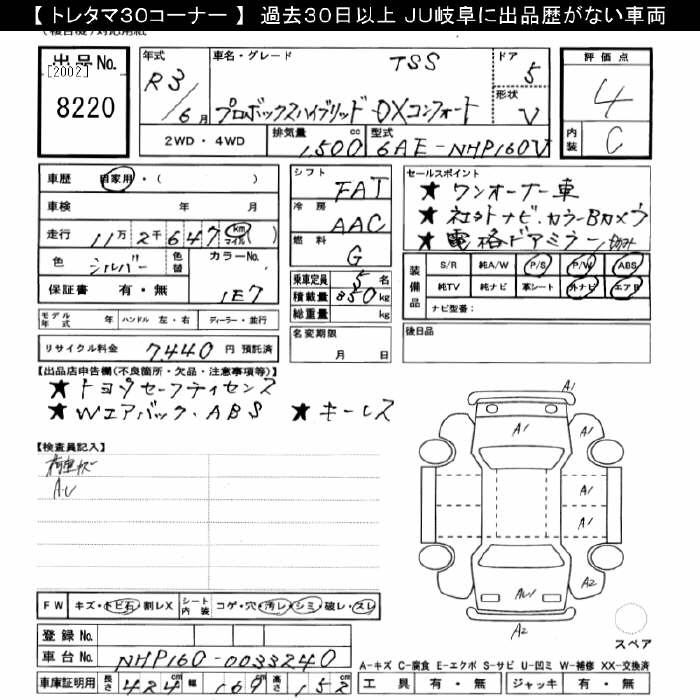 【 トレタマ30コーナー 】 過去30日以上 JU岐阜に出品歴がない車両
出品No.
[2002]
8220
年式
R3/6月
車名・グレード
TSS
プロボックスハイブリッド DXコンフォート
ドア
5
形状
V
評価点
4
内装
C
2WD・4WD
排気量
1500cc
型式
6AE-NHP160V
車歴 自家用・( )
車検 年 月
走行 11万2千647 km マイル ( )
色 シルバー 色替 カラーNo. 1E7
保証書 有・無
モデル年式 年 ハンドル 左・右 ディーラー・並行
リサイクル料金 7,440 円 預託済
シフト FAT
冷房 AAC
燃料 G
乗車定員 5名
積載量 350kg
総重量 kg
名変期限
月 日
セールスポイント
★ ワンオーナー車
★ 社外ナビ.カラーBカメラ
★ 電格ドアミラー
装備品
S/R 純A/W P/S P/W ABS
純TV 純ナビ 革シート 外ナビ エアB
ナビ型番:
後日品
【出品店申告欄(不良箇所・欠品・注意事項等)】
★ トヨタセーフティセンス
★ Wエアバック.ABS ★ キーレス
【検査員記入】
A1
A1
A1
A1
A1
A2
A2
スペア
FW キズ・トビ石・割レX シート内装 コゲ・穴・汚レ・シミ・破レ・スレ
登録No.
車台No. NHP160-0033240
車庫証明用 長さ 424cm 幅 169cm 高さ 152cm
A-キズ C-腐食 E-エクボ S-サビ U-凹ミ W-補修 XX-交換済
工具 有・無 ジャッキ 有・無